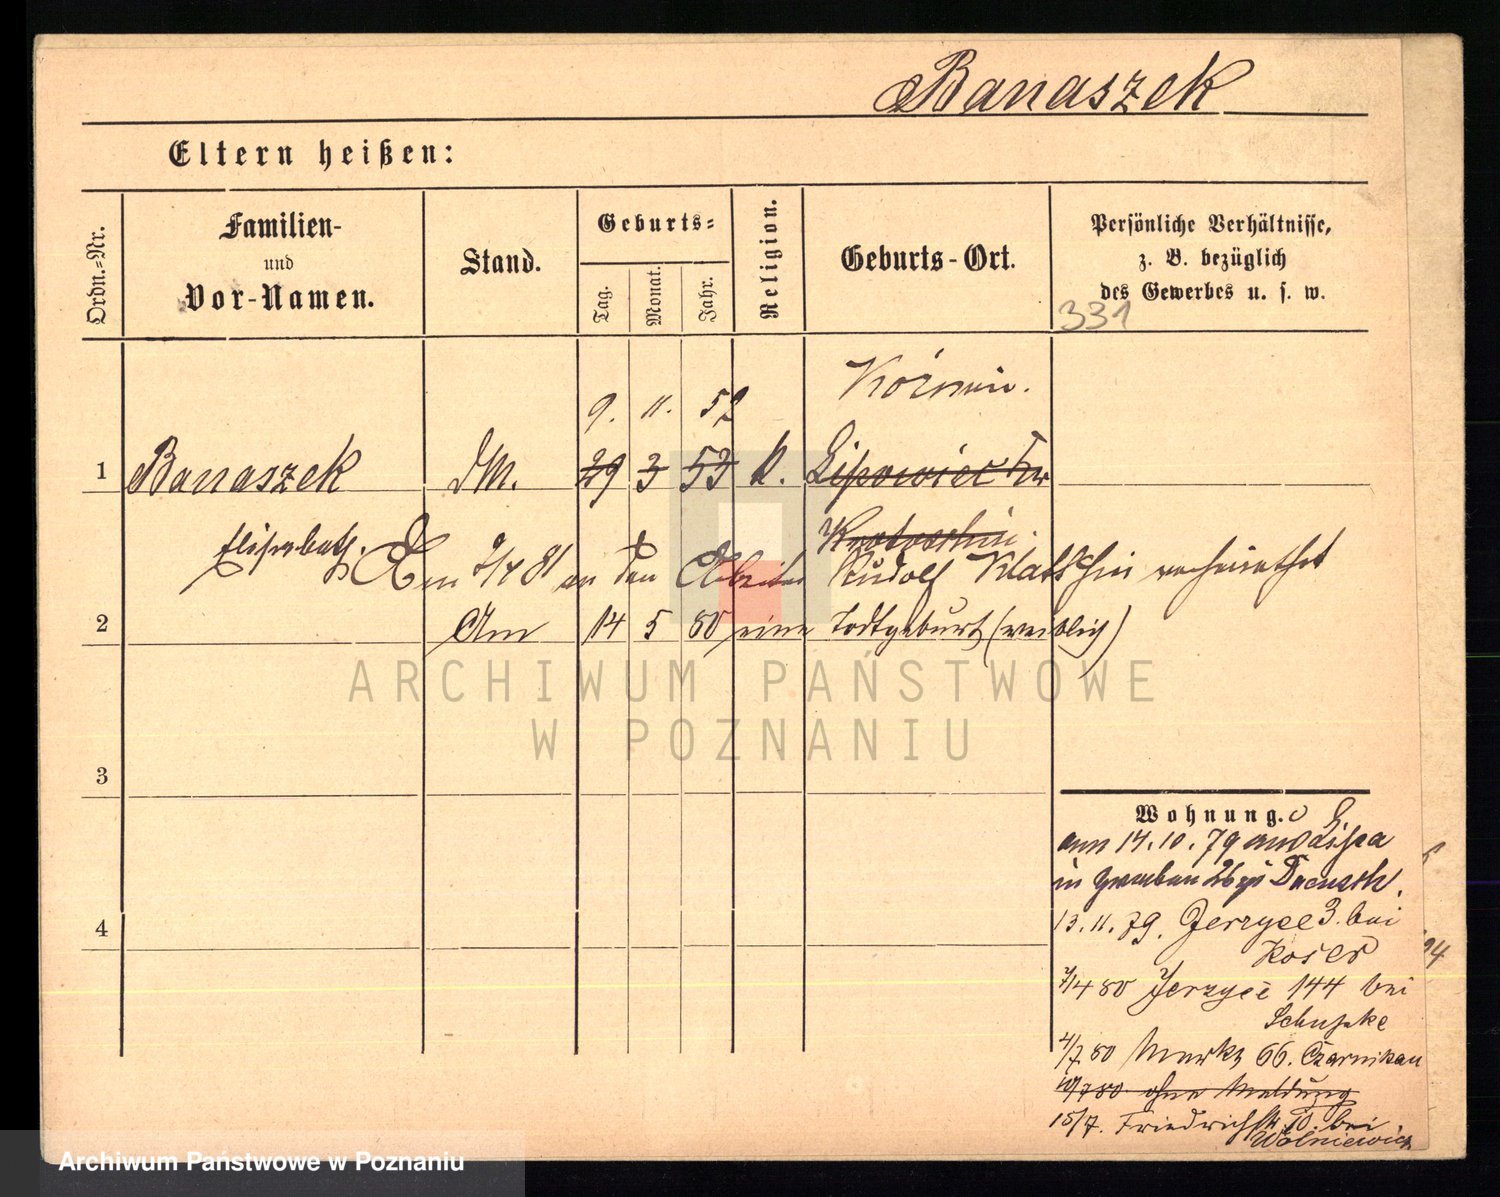 Banaszek
Eltern heißen:
Ordn.-Nr.
Familien-
und
Vor-Namen.
Stand.
Geburts-
Tag.
Monat.
Jahr.
Religion.
Geburts-Ort.
Persönliche Verhältnisse,
z. B. bezüglich
des Gewerbes u. s. w.
331
9. 11. 52
1 Banaszek DM. 29 3 53 k.
Elisabeth. Am an den Arbeiter Rudolf verheirathet
2 Am 14 5 80 eine Todtgeburt (weiblich)
ARCHIWUM PAŃSTWOWE
W POZNANIU
3
4
Wohnung.
am 14.10.79 aus Lissa
in
13.11.79. Jerzyce 3. bei
7/4 80 Jerzyce 144 bei
4/7 80 Markt 66. Czarnikau
10/7 80 ohne Meldung
15/7. Friedrichstr. 10. bei
Wolniewicz
Archiwum Państwowe w Poznaniu